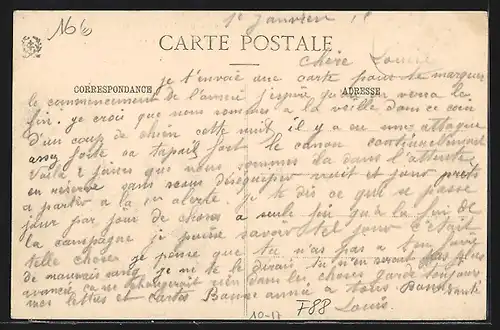 166
1er Janvier 1
CARTE POSTALE
Chère Louise
CORRESPONDANCE
ADRESSE
je t'envoie une carte pour te marquer
le commencement de l'année j'espère qu'on en verra la
fin. je crois que nous sommes a la veille dans ce coin
d'un coup de chien cette nuit il y a eu une attaque
assez forte sa tapait fort le canon continuellement
Voila 2 jours que nous sommes la dans l'attente
en reserve sans nous déséquiper nuit et jour prets
a partir a la 1er alerte. je te dis ce qui se passe
jour par jour de choses a seule fin qu'a la fin de
la campagne je puisse savoir tel jour c'était
telle chose je pense que tu n'as pas a te faire
de mauvais sang je ne te le dirais tu n'en serais pas plus
avancée ça ne changerait rien dans les choses garde toujours
mes lettres et cartes Bonne année a tous Bonne santé
Louis
10-17
F88